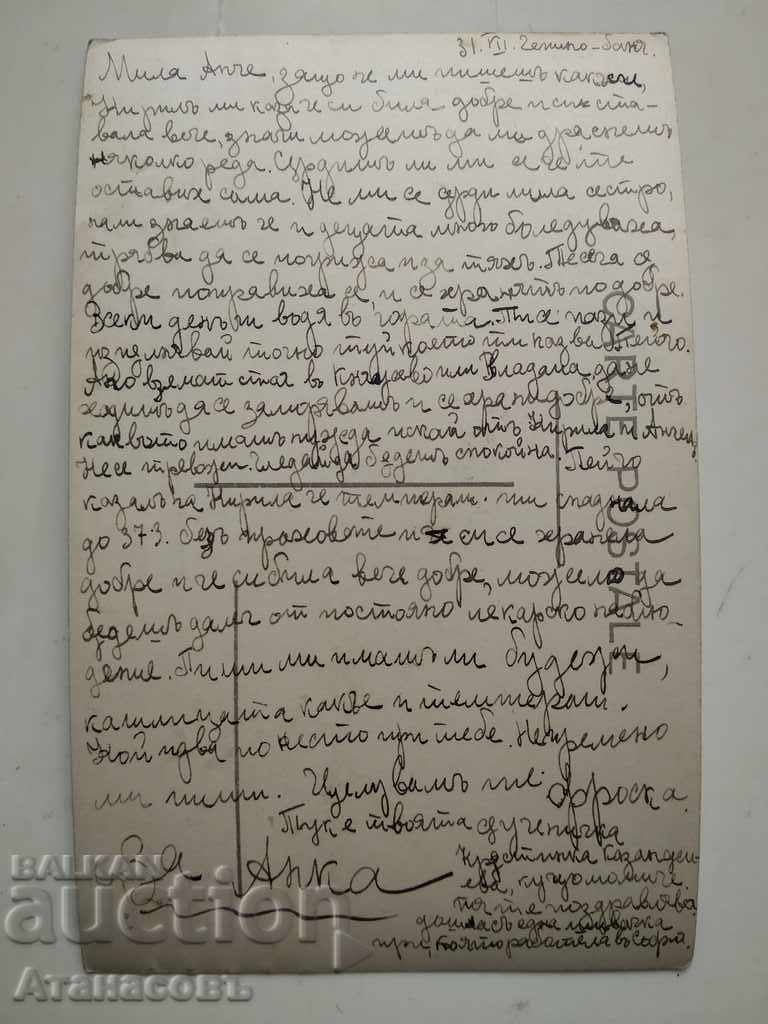 31. VII. Чепино-Баня.
Мила Анче, защо не ми пишешъ как си,
Кирилъ ми каза че си била добре и си ста-
вала вече, значи можешъ да ми драснешъ
няколко реда. Сърдишъ ли ми се че те
оставих сама. Не ми се сърди мила сестро,
нали знаешъ че и децата много боледуваха,
трябва да се погрижа и за тяхъ. Пе сега се
добре поправиха се, и се хранятъ по добре.
Всеки день ги водя въ гората. Ти се пази и
изпълнявай точно туй което ти казва Пейчо.
Ако вземат стая въ Княжево или Владая даже
ходишъ да се заморявашъ и се храни добре, отъ
каквото имашъ нужда искай отъ Кирила и Ангел.
Не се тревожи. Гледай да бедешъ спокойна. Пейчо
казалъ на Кирила че температ. ти спаднала
до 373. безъ праховете и си се хранела
добре и че си била вече добре, можело да
бедешъ далеч от постояно лекарско наблю-
дение. Пиши ми имашъ ли бодежи,
кашлицата какъ е и температ.
Кой идва по често при тебе. Непремено
ми пиши. Целувамъ те Фроска.
Тук е твоята съученичка
Кръстинка Казандж-
ева,
и тя те поздравлява
дошла съ една
която работела въ София.
За Анка
CARTE POSTALE
BALKAN
auction
Атанасовъ